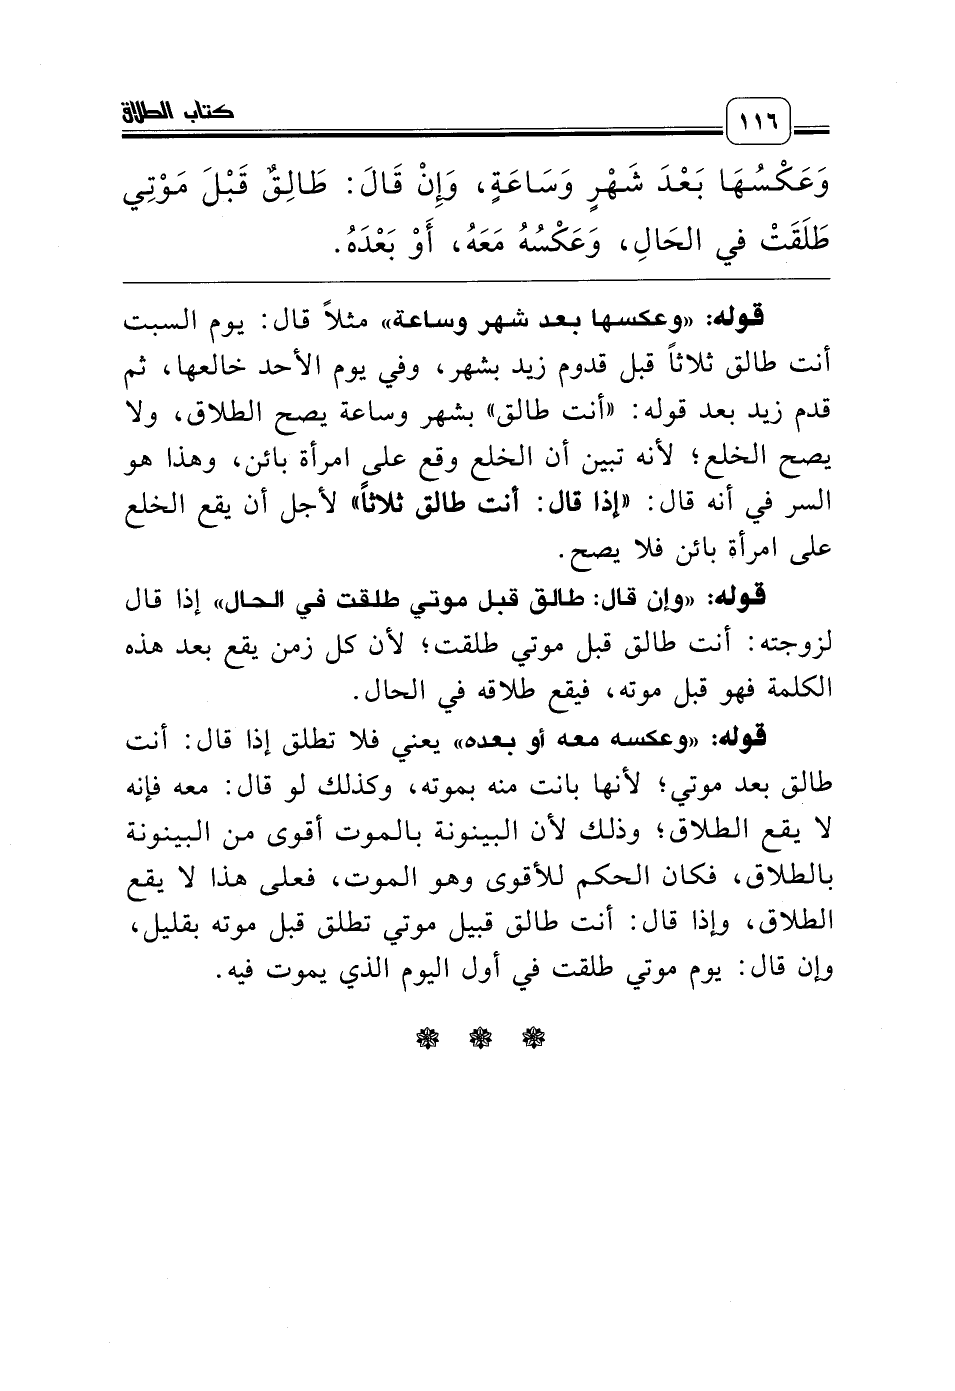 كتاب الطلاق
١١٦
وَعَكْسُهَا بَعْدَ شَهْرٍ وَسَاعَةٍ، وَإِنْ قَالَ: طَالِقٌ قَبْلَ مَوْتِي
طَلَقَتْ في الحَالِ، وَعَكْسُهُ مَعَهُ، أَوْ بَعْدَهُ.
قوله: «وعكسها بعد شهر وساعة» مثلاً قال: يوم السبت
أنت طالق ثلاثاً قبل قدوم زيد بشهر، وفي يوم الأحد خالعها، ثم
قدم زيد بعد قوله: «أنت طالق» بشهر وساعة يصح الطلاق، ولا
يصح الخلع؛ لأنه تبين أن الخلع وقع على امرأة بائن، وهذا هو
السر في أنه قال: «إذا قال: أنت طالق ثلاثاً» لأجل أن يقع الخلع
على امرأة بائن فلا يصح.
قوله: «وإن قال: طالق قبل موتي طلقت في الحال» إذا قال
لزوجته: أنت طالق قبل موتي طلقت؛ لأن كل زمن يقع بعد هذه
الكلمة فهو قبل موته، فيقع طلاقه في الحال.
قوله: «وعكسه معه أو بعده» يعني فلا تطلق إذا قال: أنت
طالق بعد موتي؛ لأنها بانت منه بموته، وكذلك لو قال: معه فإنه
لا يقع الطلاق؛ وذلك لأن البينونة بالموت أقوى من البينونة
بالطلاق، فكان الحكم للأقوى وهو الموت، فعلى هذا لا يقع
الطلاق، وإذا قال: أنت طالق قبيل موتي تطلق قبل موته بقليل،
وإن قال: يوم موتي طلقت في أول اليوم الذي يموت فيه.